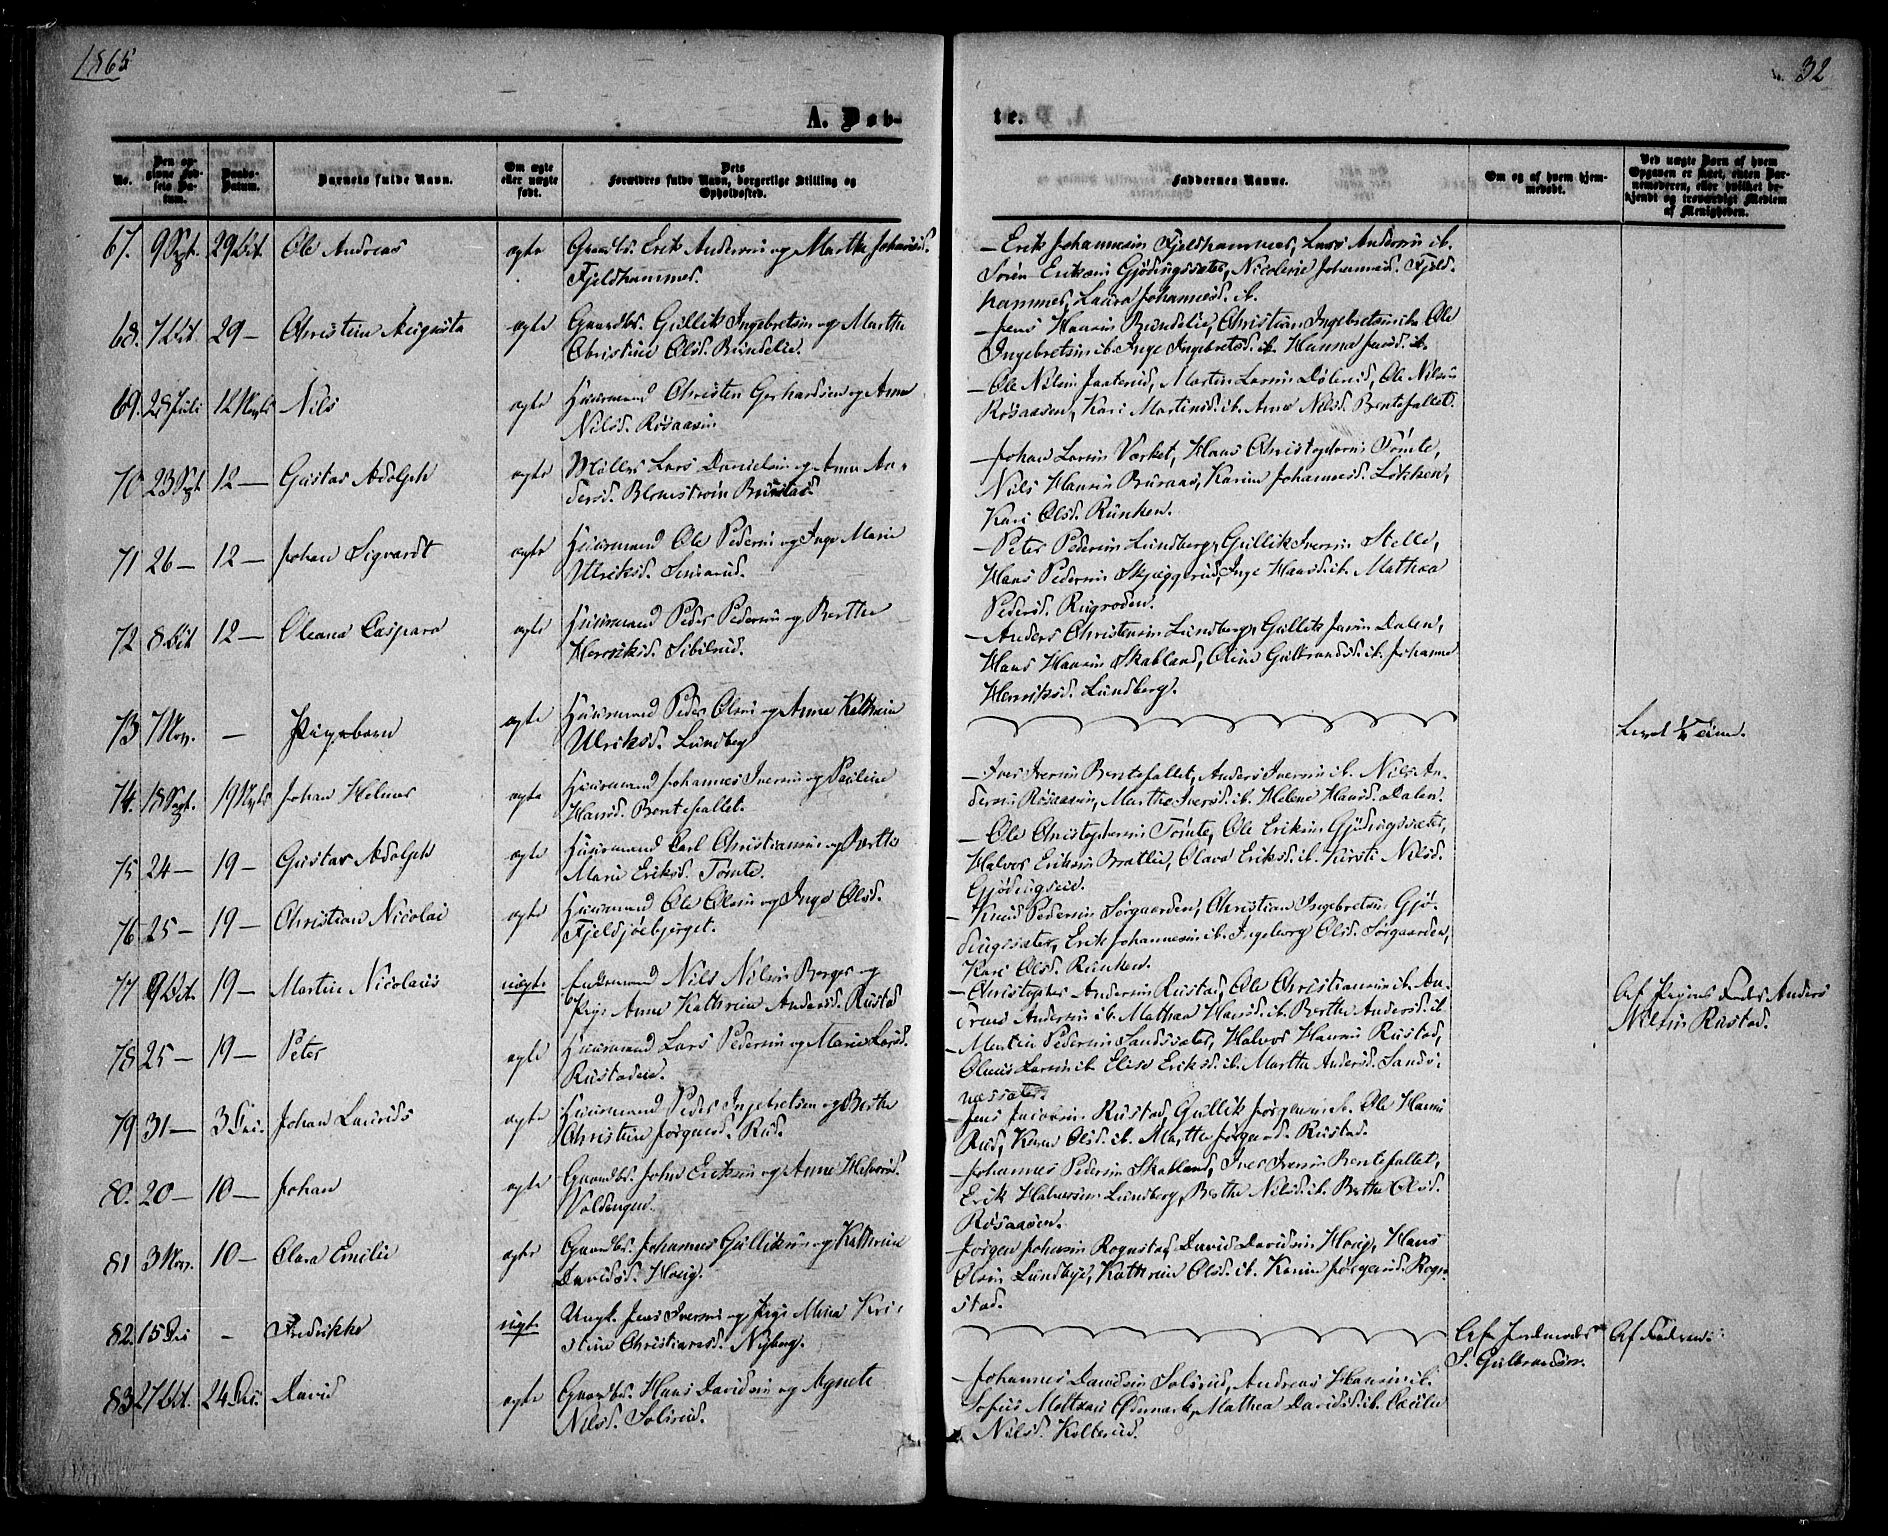 1865
32
A. Døb-
te.
No.
Den op-
givne Fød-
sels Da-
tum.
Daabs-
Datum.
Barnets fulde Navn.
Om ægte
eller uægte
født.
Dets
Forældres fulde Navn, borgerlige Stilling og
Opholdssted.
Faddernes Navne.
Om og af hvem hjem-
medøbt.
Ved uægte Børn af hvem
Opgaven er skeet, enten Bar-
nemoderen, eller hvilket be-
kjendt og troværdigt Medlem
af Menigheden.
67. 9 Sept. 29 Oct. Ole Andreas ægte Gaardbr. Erik Andersen og Marthe Johannesd.
Fjeldhammer.
Erik Johannesen Fjeldhammer, Lars Andersen ib.
Søren Eriksen Gjødingssæter, Nicoline Johannesd. Fjeld-
hammer, Laura Johannesd. ib.
68. 7 Oct. 29 — Christine Augusta ægte Gaardbr. Gullik Ingebretsen og Marthe
Christine Olsd. Bundelie.
Jens Hansen Bundelie, Christian Ingebretsen ib. Ole
Ingebretsen ib. Inge Ingebretsd. ib. Hanna Jensd. ib.
69. 28 Juli 12 Novbr Nils ægte Huusmand Christen Gerhardsen og Anne
Nilsd. Røsaasen
Ole Nilsen Jaaterud, Martin Larsen Dølerud, Ole Nilsen
Røsaasen, Kari Martinsd. ib. Anne Nilsd. Bentefallet.
70 23 Sept 12 — Gustav Adolph ægte Møller Lars Danielsen og Anne An-
dersd. Blomstrøm Brustad.
Johan Larsen Værket, Hans Christophersen Tømte,
Nils Hansen Buraas, Karine Johannesd. Løkken,
Kari Olsd. Runken.
71 26 — 12 — Johan Sigvardt ægte Huusmand Ole Pedersen og Inge Marie
Ulriksd.
Peter Pedersen Lundberg, Gullik Iversen Stelle,
Hans Pedersen Skjeggerud, Inge Hansd. ib. Mathea
Pedersd. Rugroden.
72 8 Oct 12 — Oleana Caspara ægte Huusmand Peder Pedersen og Berthe
Henriksd. Sibilrud.
Anders Christensen Lundberg, Gullik Jensen Dalen,
Hans Hansen Skabland, Oline Gulbrandsd. ib. Johanne
Henriksd. Lundberg.
73 7 Nov. — Pigebarn ægte Huusmand Peder Olsen og Anne Kathrine
Ulriksd. Lundberg
Levet ½ Time.
74. 18 Sept. 19 Novbr Johan Helmer ægte Huusmand Johannes Iversen og Pauline
Hansd. Bentefallet.
Iver Iversen Bentefallet, Anders Iversen ib. Nils An-
dersen Røsaasen, Marthe Iversd. ib. Helene Hansd. Dalen.
75 24 — 19 — Gustav Adolph ægte Huusmand Carl Christiansen og Berthe
Marie Eriksd. Tømte.
Ole Christophersen Tømte, Ole Eriksen Gjødingssæter,
Halvor Eriksen Bratlie, Olava Eriksd. ib. Kirsti Nilsd.
Gjødingseie.
76 25 — 19 — Christian Nicolai ægte Huusmand Ole Olsen og Inge Olsd.
Fjeldsjøebjerget.
Knud Pedersen Sørgaarden, Christian Ingebretsen Gjø-
dingssæter, Erik Johannesen ib. Ingeborg Olsd. Sørgaarden,
Kari Olsd. Runken.
77 9 Oct. 19 — Martin Nicolaus uægte Enkemand Nils Nilsen Berger og
Pige Anne Kathrine Andersd. Rustad
Christopher Andersen Rustad, Ole Christiansen ib. An-
dreas Andersen ib. Mathea Hansd. ib. Berthe Andersd. ib.
Af Pigens Fader Anders
Nilsen Rustad.
78 25 — 19 — Peter ægte Huusmand Lars Pedersen og Marie Larsd.
Rustadeie.
Martin Pedersen Sandssæter, Halvor Hansen Rustad,
Olaus Larsen ib. Elise Eriksd. ib. Marthe Andersd. Sands-
næssæter.
79 31 — 3 Dec. Johan Laurids ægte Huusmand Peder Ingebretsen og Berthe
Christine Jørgensd. Rud.
Jens Jacobsen Rustad, Gullik Jørgensen ib. Ole Hansen
Rud, Karen Olsd. ib. Marthe Jørgensd. Rustad.
80. 20 — 10 — Johan ægte Gaardbr. John Eriksen og Anne Halvorsd.
Voldengen.
Johannes Pedersen Skabland, Iver Iversen Bentefallet,
Erik Halvorsen Lundberg, Berthe Nilsd. ib. Berthe Olsd.
Røsaasen.
81 3 Nov. 10 — Clara Emilie ægte Gaardbr. Johannes Gulliksen og Kathrine
Davidsd. Houg.
Jørgen Johnsen Rognstad, David Davidsen Houg, Hans
Olsen Lundbye, Kathrine Olsd. ib. Karen Jørgensd. Rogn-
stad.
82. 15 Dec — Fredrikke uægte Ungk. Jens Iversen og Pige Mina Kri-
stine Christiansd. Nyborg.
Af Jordmoder
S. Gulbrandsen.
Af Faderen
83 27 Oct. 24 Dec. David ægte Gaardbr. Hans Davidsen og Agnete
Nilsd. Solerud.
Johannes Davidsen Solerud, Andreas Hansen ib.
Sofus Mathsen Ødemark, Mathea Davidsd. ib. Cecilie
Nilsd. Kolterud.